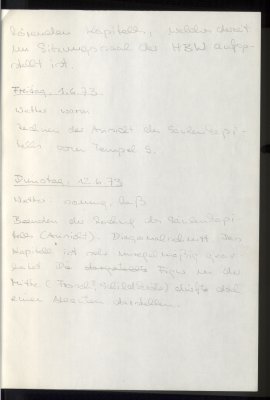 Kapitells, welches derzeit
im Sitzungssaal des HBW aufge-
stellt ist.
Freitag, 1.6.73.
Wetter: warm
Zeichnen der Ansicht des Säulenkapi-
tells vom Tempel S.
Dienstag, 12.6.73
Wetter: sonnig, heiß
Beenden der Zeichnung des Säulenkapi-
tells (Ansicht). Diagonalschnitt. Das
Kapitell ist sehr unregelmäßig gear-
beitet. Die dargestellte Figur in der
Mitte (Frosch?, Schildkröte) dürfte doch
einen darstellen.